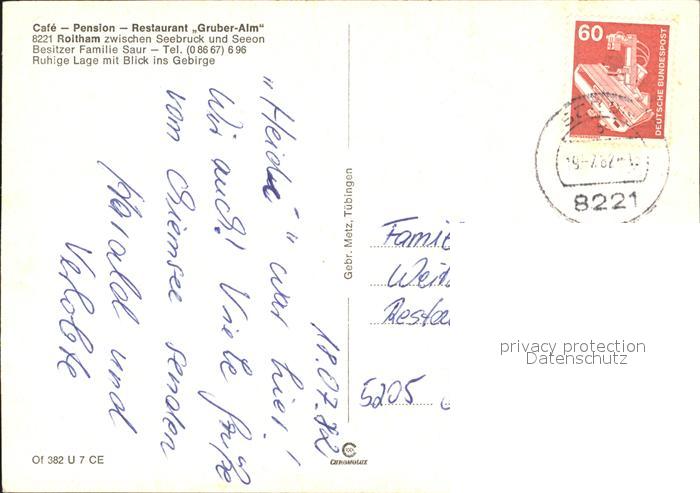 Café — Pension — Restaurant „Gruber-Alm"
8221 Roitham zwischen Seebruck und Seeon
Besitzer Familie Saur — Tel. (0 86 67) 6 96
Ruhige Lage mit Blick ins Gebirge
60
DEUTSCHE BUNDESPOST
8221
18.07.82
„Heidi" war hier!
Wir auch! Viele Grüße
vom Chiemsee senden
Harald und
Verlobte
Gebr. Metz, Tübingen
Famil
Weit
Resta
5205
privacy protection
Datenschutz
Of 382 U 7 CE
CHROMOLUX